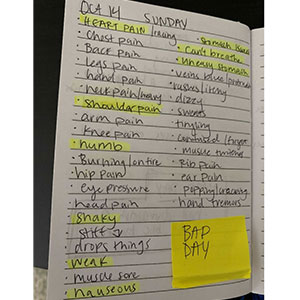 Oct 14 SUNDAY
HEART PAIN / racing
· Chest pain
· Back pain
· legs pain
· hand pain
· neck pain/heavy
· Shoulder pain
· arm pain
· knee pain
· numb
· Burning/on fire
· hip pain
· eye pressure
· head pain
· shaky
· stiff
· drops things
· weak
· muscle sore
· nauseous
· Stomach
· Can't breathe
· uneasy stomach
· veins blue
· rashes/itchy
· dizzy
· sweats
· tingling
· confused
· muscle
· Rib pain
· ear pain
· popping/cracking
· hand tremors
BAD
DAY